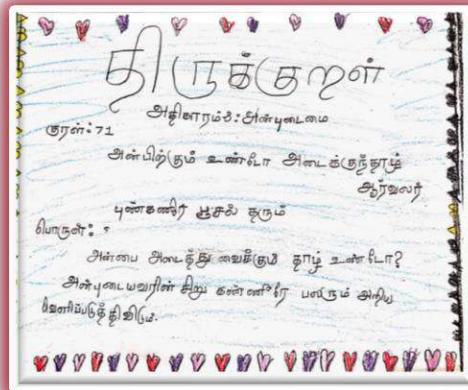 திருக்குறள்
அதிகாரம்8:அன்புடைமை
குரள்:71
அன்பிற்கும் உண்டோ அடைக்குந்தாழ்
ஆர்வலர்
புண்கணீர் பூசல் தரும்
பொருள்:
அன்பை அடைத்து வைக்கும் தாழ் உண்டோ?
அன்புடையவரின் சிறு கண்ணீரே பலரும் அறிய
வெளிப்படுத்திவிடும்.